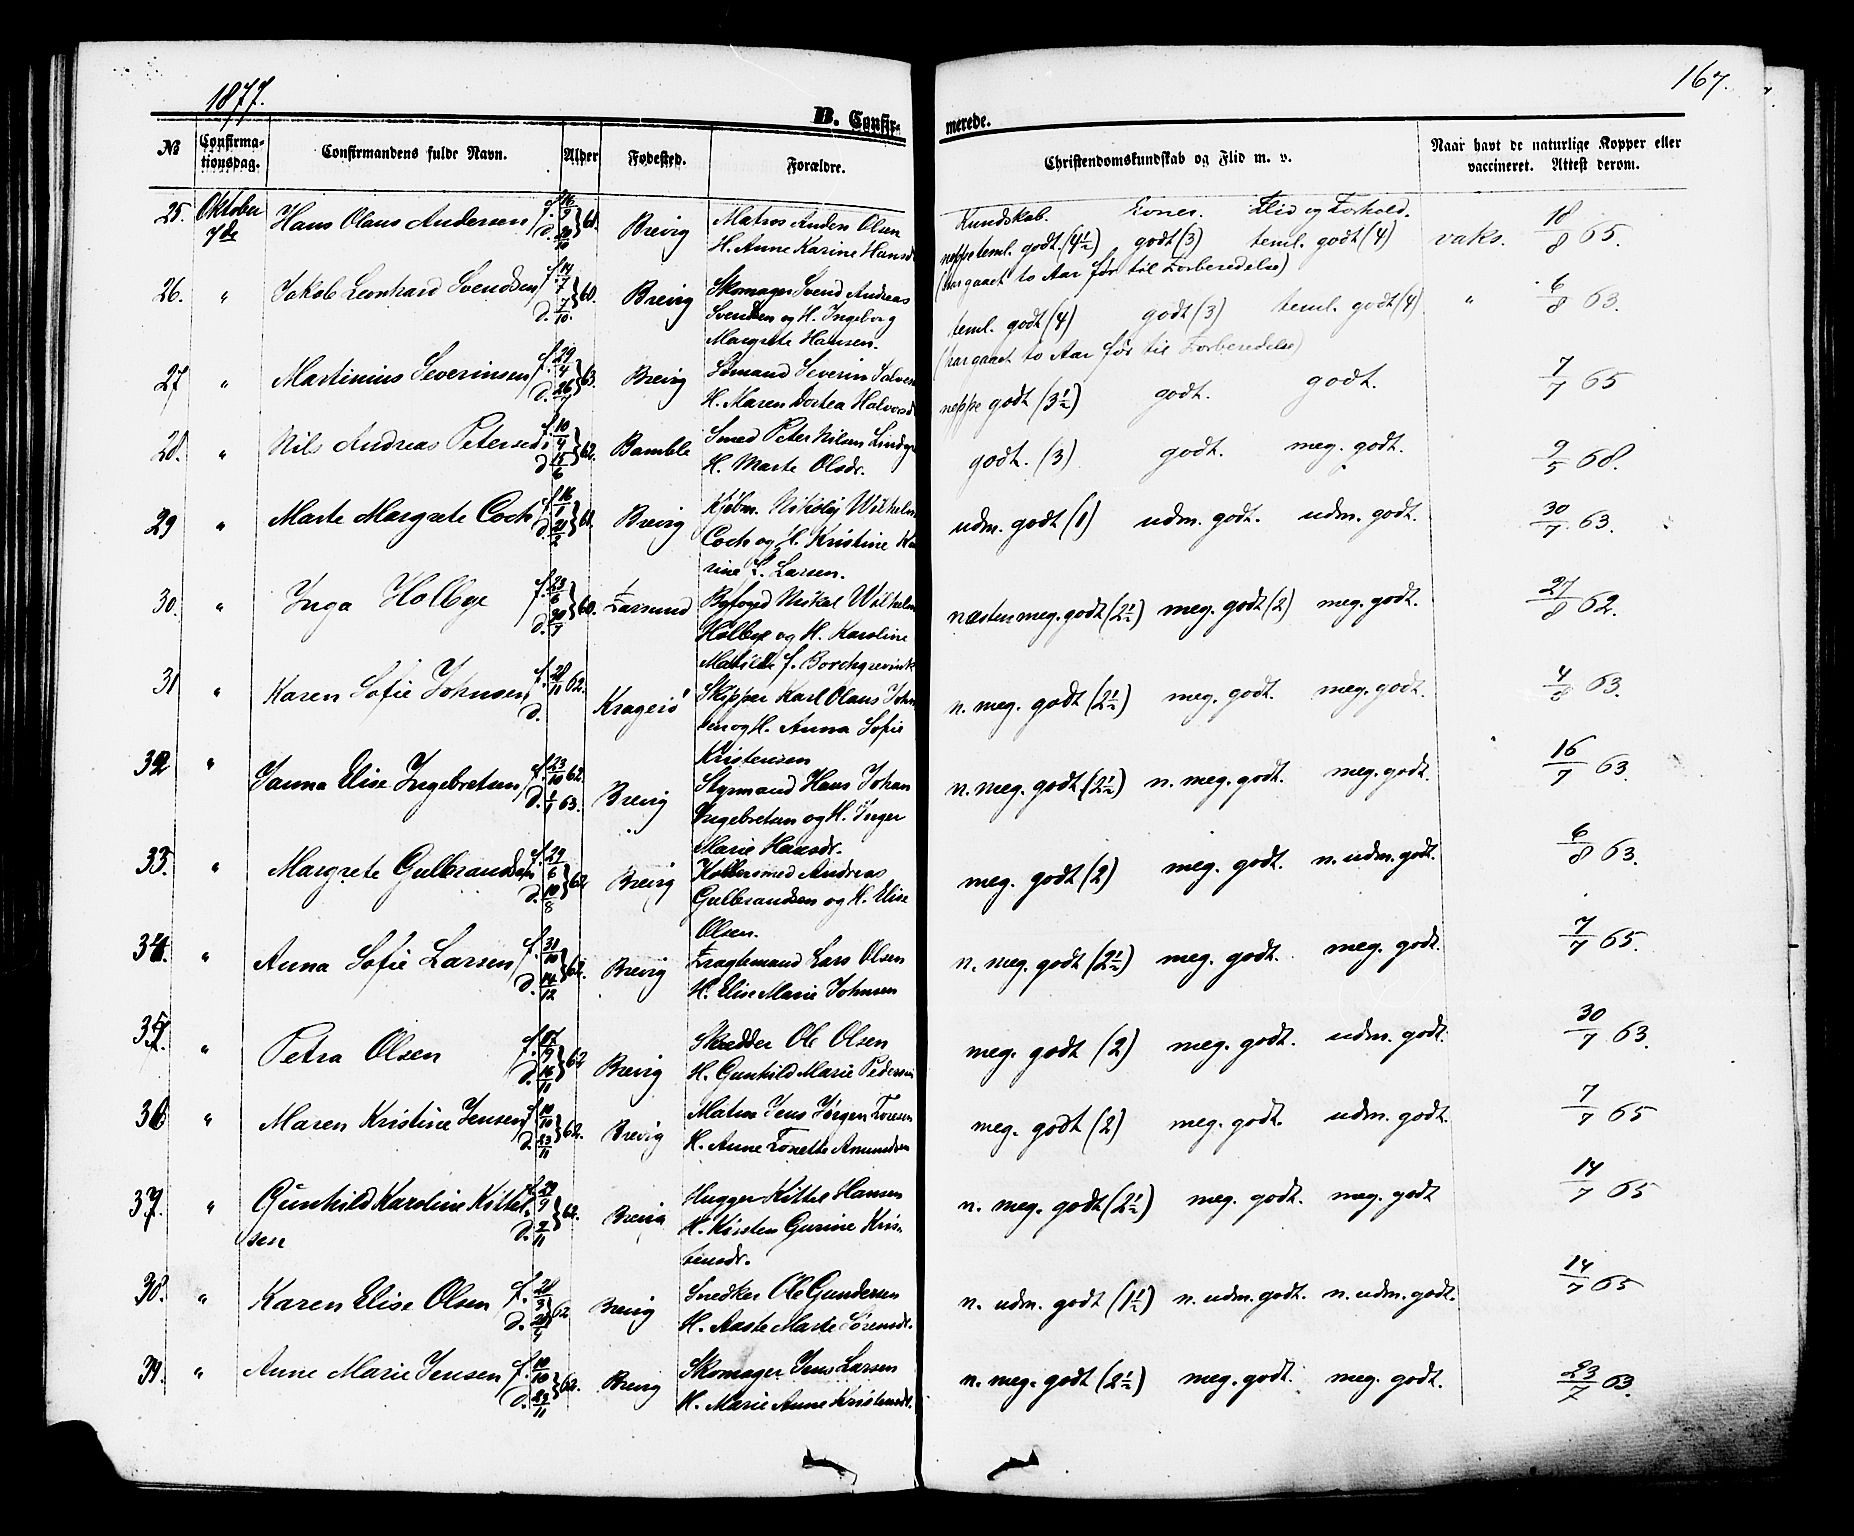 1877.
167.
B. Confir-
merede.
№
Confirma-
tionsdag.
Confirmandens fulde Navn.
Alder
Fødested.
Forældre.
Christendomskundskab og Flid m. v.
Naar havt de naturlige Kopper eller
vaccineret. Attest derom.
Kundskab. Evner. Flid og Forhold.
25. Oktober 7de Hans Olaus Andersen f. 16/9 d. 20/10 61. Brevig
Matros Anders Olsen
H. Anne Karine Hansd.
neppe teml. godt. (4½) godt (3) teml. godt (4) vaks. 18/8 65.
(har gaaet to Aar før til Forberedelse)
26. " Jakob Leonhard Svendsen f. 14/7 d. 7/10. 60. Brevig
Skomager Svend Andreas
Svendsen og H. Ingeborg
Margrete Hansen.
teml. godt (4) godt (3) teml. godt (4) " 6/8 63.
(har gaaet to Aar før til Forberedelse)
27 " Martinius Severinsen f. 29/4 d. 26/7 63. Brevig
Sømand Severin Salves
H. Maren Dortea Halvorsd
neppe godt (3½) godt. godt. 7/7 65
28. " Nils Andreas Petersen f. 10/4 d. 15/6 62. Bamble
Smed Peter Nilsen Lindgr
H. Marte Olsdr.
godt. (3) godt. meg. godt. 9/5 68.
29 " Marte Margrete Coch f. 16/1 d. 21/2 61. Brevig
Kjøbm. Nikolaj Wilhelm
Coch og H. Kristine Ka
rine L. Larsen.
udm. godt (1) udm. godt. udm. godt. 30/7 63.
30. " Inga Holbye f. 23/6 d. 20/7 60. Farsund
Byfoged Mikal Wilhelm
Holbye og H. Karoline
Matilde f. Borchgrevink
næsten meg. godt (2½) meg. godt (2) meg. godt. 27/8 62.
31 " Karen Sofie Johnsen f. 28/11 62. d. Kragerø
Skipper Karl Olaus John
sen og H. Anna Sofie
Kristensen
n. meg. godt (2½) meg. godt. meg. godt. 4/8 63.
32 " Janna Elise Ingebretsen f. 23/10 62. d. 1/1 63. Brevig
Styrmand Hans Johan
Ingebretsen og H. Inger
Marie Hansdr.
n. meg. godt (2½) n. meg. godt. meg. godt. 16/7 63.
33. " Margrete Gulbrandsen f. 29/6 d. 10/8 62 Brevig
Kobbersmed Andreas
Gulbrandsen og H. Elise
Olsen.
meg. godt (2) meg. godt. n. udm. godt. 6/8 63.
34. " Anna Sofie Larsen f. 31/10 d. 14/12 62. Brevig
Fragtemand Lars Olsen
H. Elise Marie Johnsen
n. meg. godt (2½) meg. godt. meg. godt. 7/7 65.
35. " Petra Olsen f. 07/9 d. 16/11 62 Brevig
Skrædder Ole Olsen
H. Gunhild Marie Pedersen
meg. godt (2) meg. godt. udm. godt. 30/7 63.
36 " Maren Kristine Jensen f. 10/10 d. 23/11 62. Brevig
Matros Jens Jørgen Toresen
H. Anne Tonette Amundsen
meg. godt (2) meg. godt. udm. godt. 7/7 65
37. " Gunhild Karoline Kittel
sen f. 22/9 d. 2/11 62. Brevig
Hugger Kittel Hansen
H. Kirsten Gurine Kris-
tensdr.
n. meg. godt (2½) meg. godt. meg. godt 14/7 65
38. " Karen Elise Olsen f. 28/3 d. 20/4 62 Brevig
Snedker Ole Gundersen
H. Aaste Marte Sørensdr.
n. udm. godt (1½) n. udm. godt. n. udm. godt. 14/7 65
39. " Anne Marie Jensen f. 10/10 d. 29/11 62. Brevig
Skomager Jens Larsen
H. Marie Anne Kristensdr.
n. meg. godt (2½) meg. godt. meg. godt. 23/7 63.